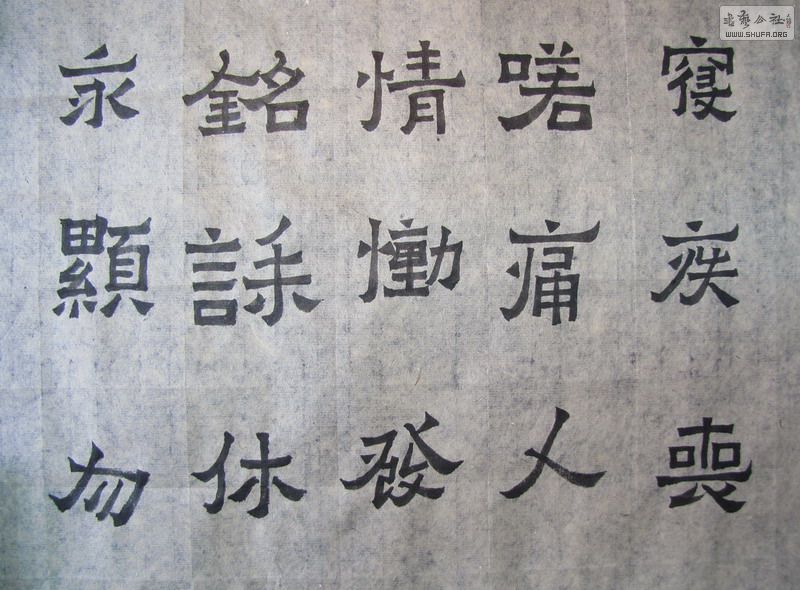 寑疾喪
嗟痛人
情慟發
銘誄休
永顯勿
书艺公社
WWW.SHUFA.ORG